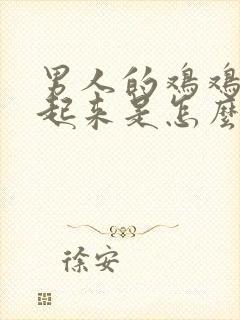 男人的鸡鸡
起来是怎麽
徐安